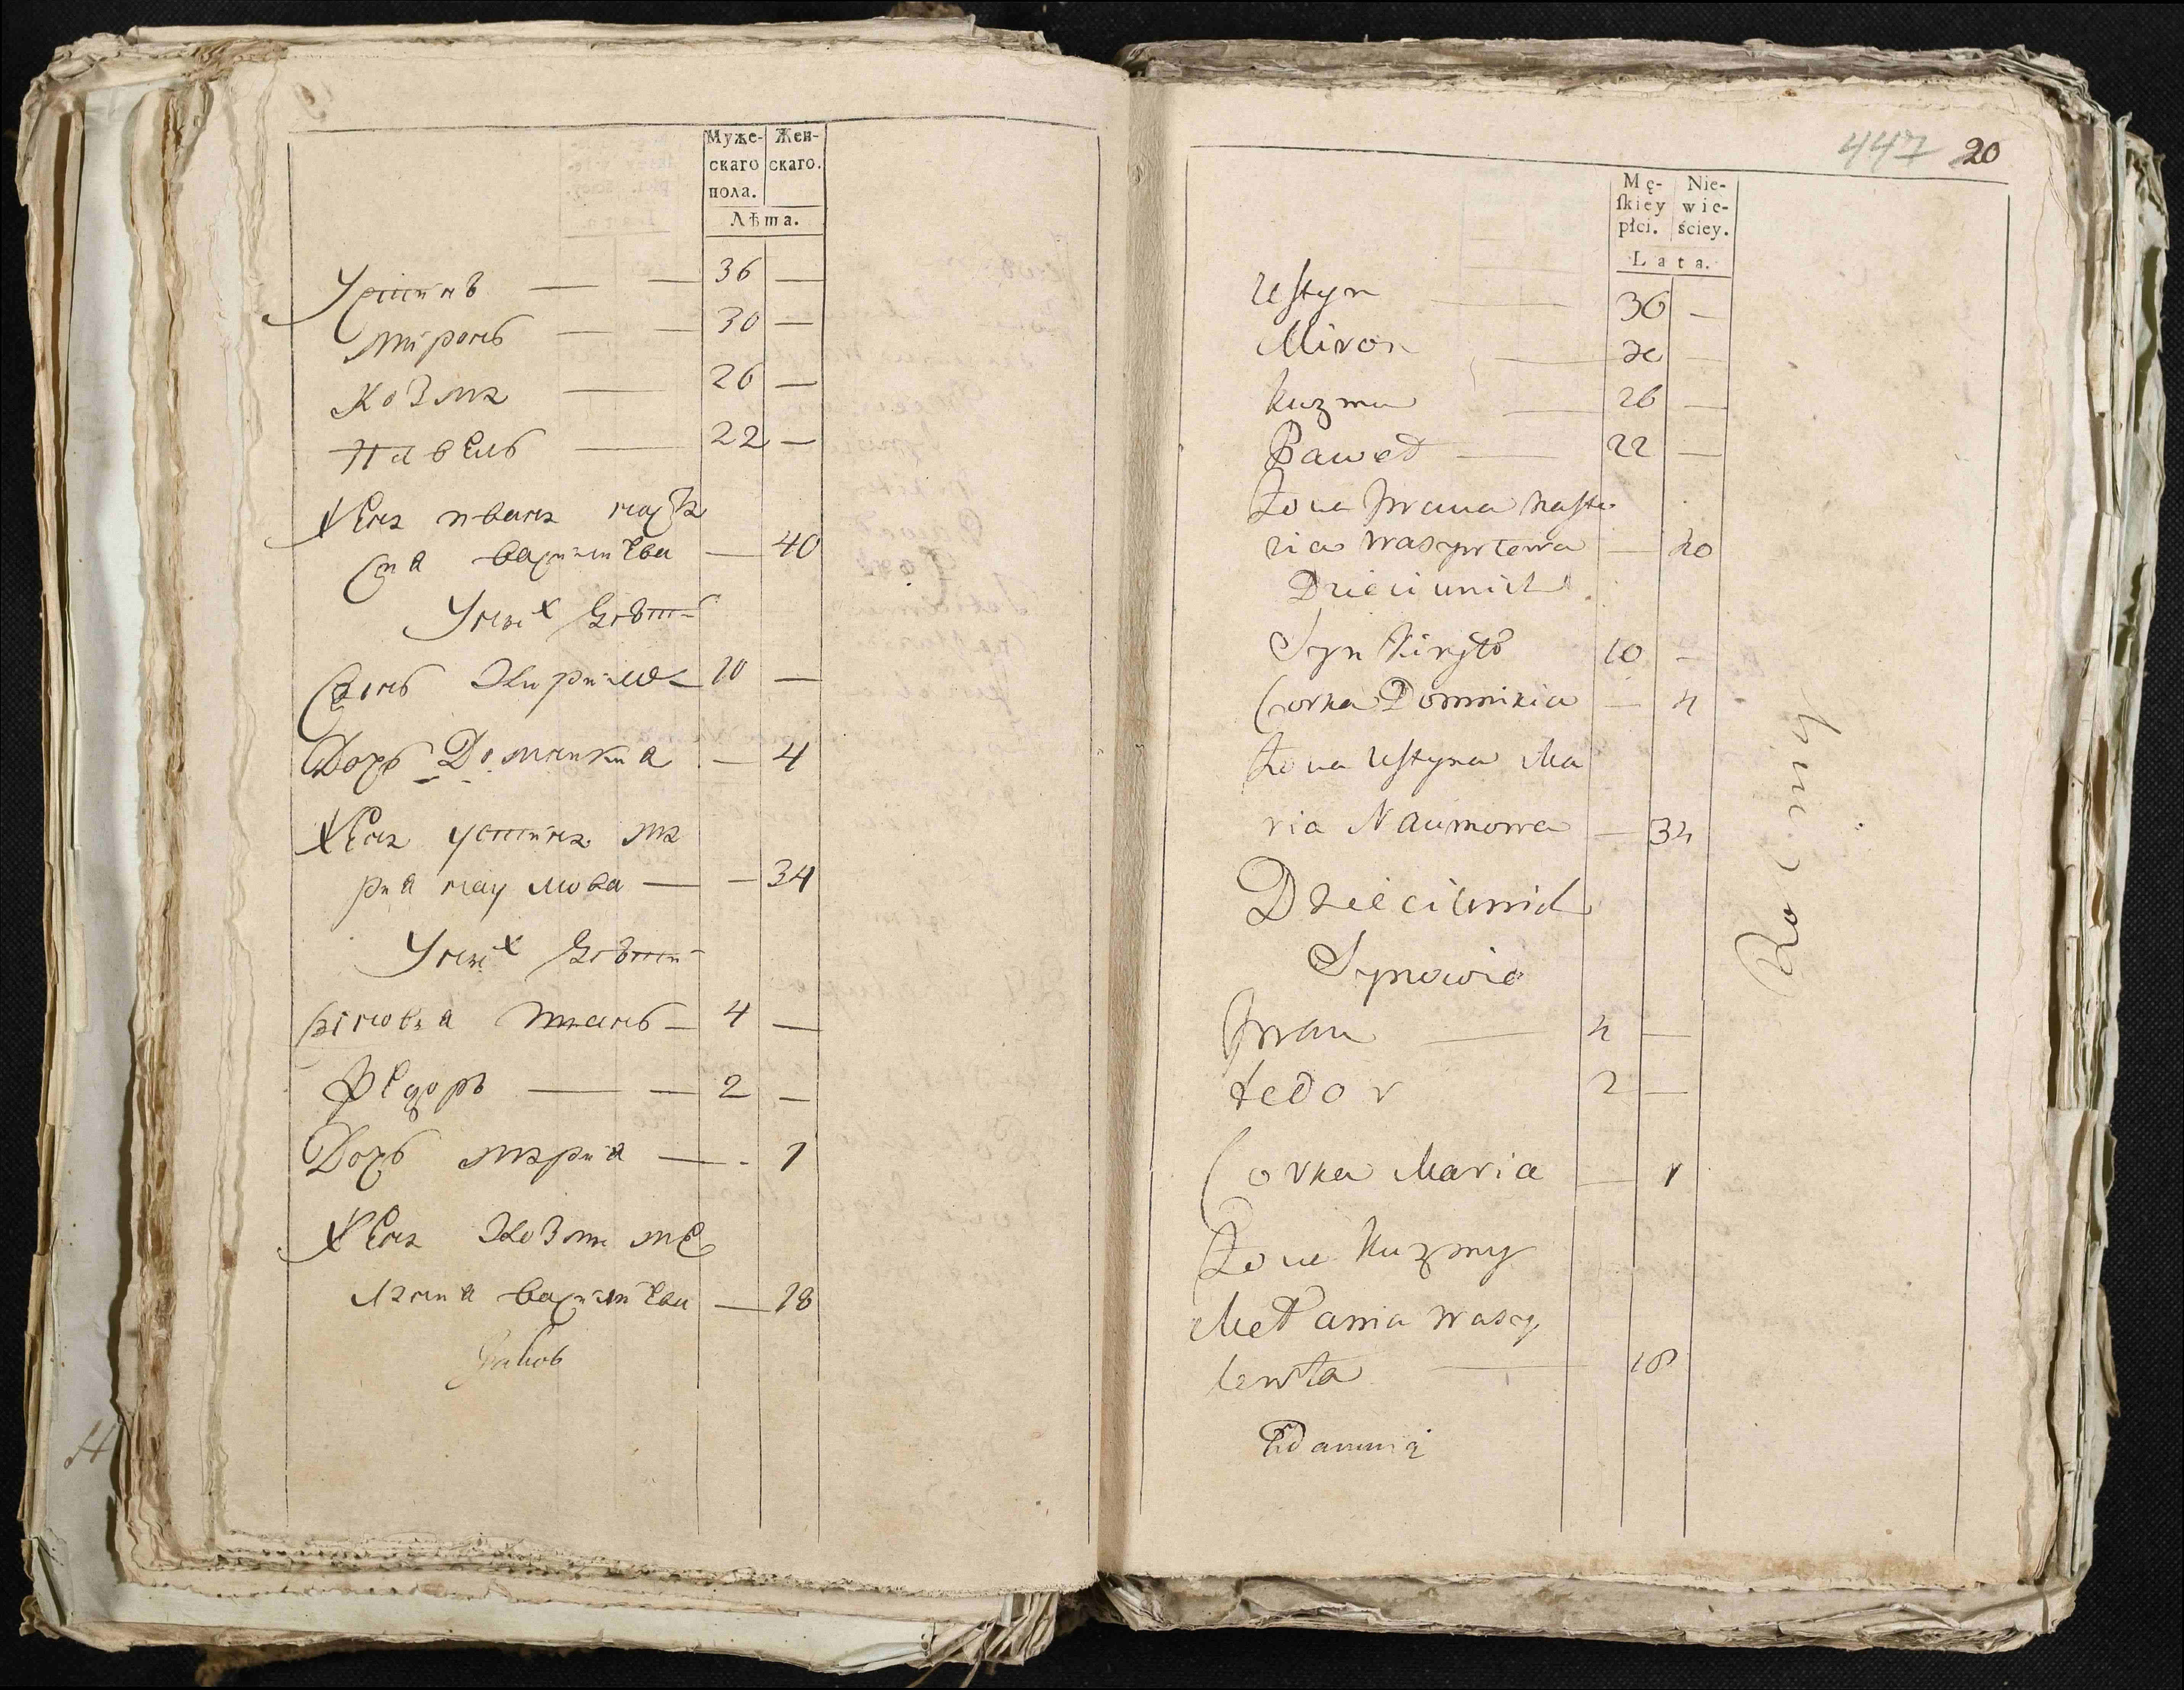 Муже- Жен-
скаго скаго.
пола.
Лѣта.
Устинъ — — 36 —
Миронъ — — 30 —
Козма — 26 —
Павелъ — 22 —
Жена ивана наста
сиа василиева — 40
У них дѣти
Сынъ Кирило 10 —
Дочь Доминикиа — 4
Жена устина ма
риа наумова — — 34
У них дѣти
Синовѧ иванъ — 4 —
Федоръ — — 2 —
Дочь мариа — - 1
Жена Козми ме
лания василиева — 28
447 20
Mę- Nie-
ſkiey wie-
płci. ściey.
Lata.
Uſtyn — 36 —
Miron — 30 —
Kuzma — 26 —
Paweł — 22 —
Żona Jwana Nasta
zia Wasylewa — 40
Dzieci u nich
Syn Kiryło 10 —
Corka Dominikia — 4
Żona Uſtyna Ma
ria Naumowa — 34
Dzieci u nich
Synowie
Jwan — 4 —
Fedor 2 —
Corka Maria — 1
Żona Kuzmy
Mełania Wasy
lewła — 18